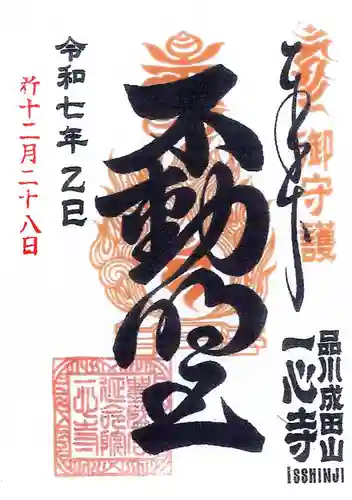 奉拝
御守護
品川成田山
一心寺
ISSHINJI
不動明王
令和七年乙巳
十二月二十八日
一心寺